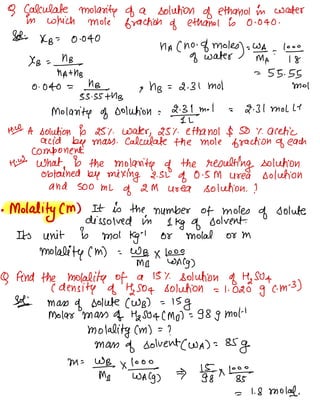 Q Calculate molarity of a solution of ethanol in water
in which mole fraction of ethanol is 0.040.
Sol:- XB = 0.040
nA (no. of moles of water) = WA/MA = 1000/18
XB = nB/(nA+nB)
= 55.55 mol
0.040 = nB/(55.55+nB) , nB = 2.31 mol
Molarity of solution = 2.31 mol/1L = 2.31 mol L-1
H.W A solution is 25% water, 25% ethanol & 50% acetic
acid by mass. Calculate the mole fraction of each
component.
H.W What is the molarity of the resulting solution
obtained by mixing 2.5L of 0.5 M urea solution
and 500 mL of 2M urea solution.?
• Molality (m) It is the number of moles of solute
dissolved in 1kg of solvent.
Its unit is mol kg-1 or molal or m
molality (m) = WB/MB × 1000/WA(g)
Q Find the molality of a 15% solution of H2SO4
(density of H2SO4 solution = 1.020 g cm-3)
Sol:- mass of solute (WB) = 15g
Molar mass of H2SO4 (MB) = 98 g mol-1
molality (m) = ?
mass of solvent (WA) = 85g
m = WB/MB × 1000/WA(g) ⇒ 15/98 × 1000/85
= 1.8 molal.